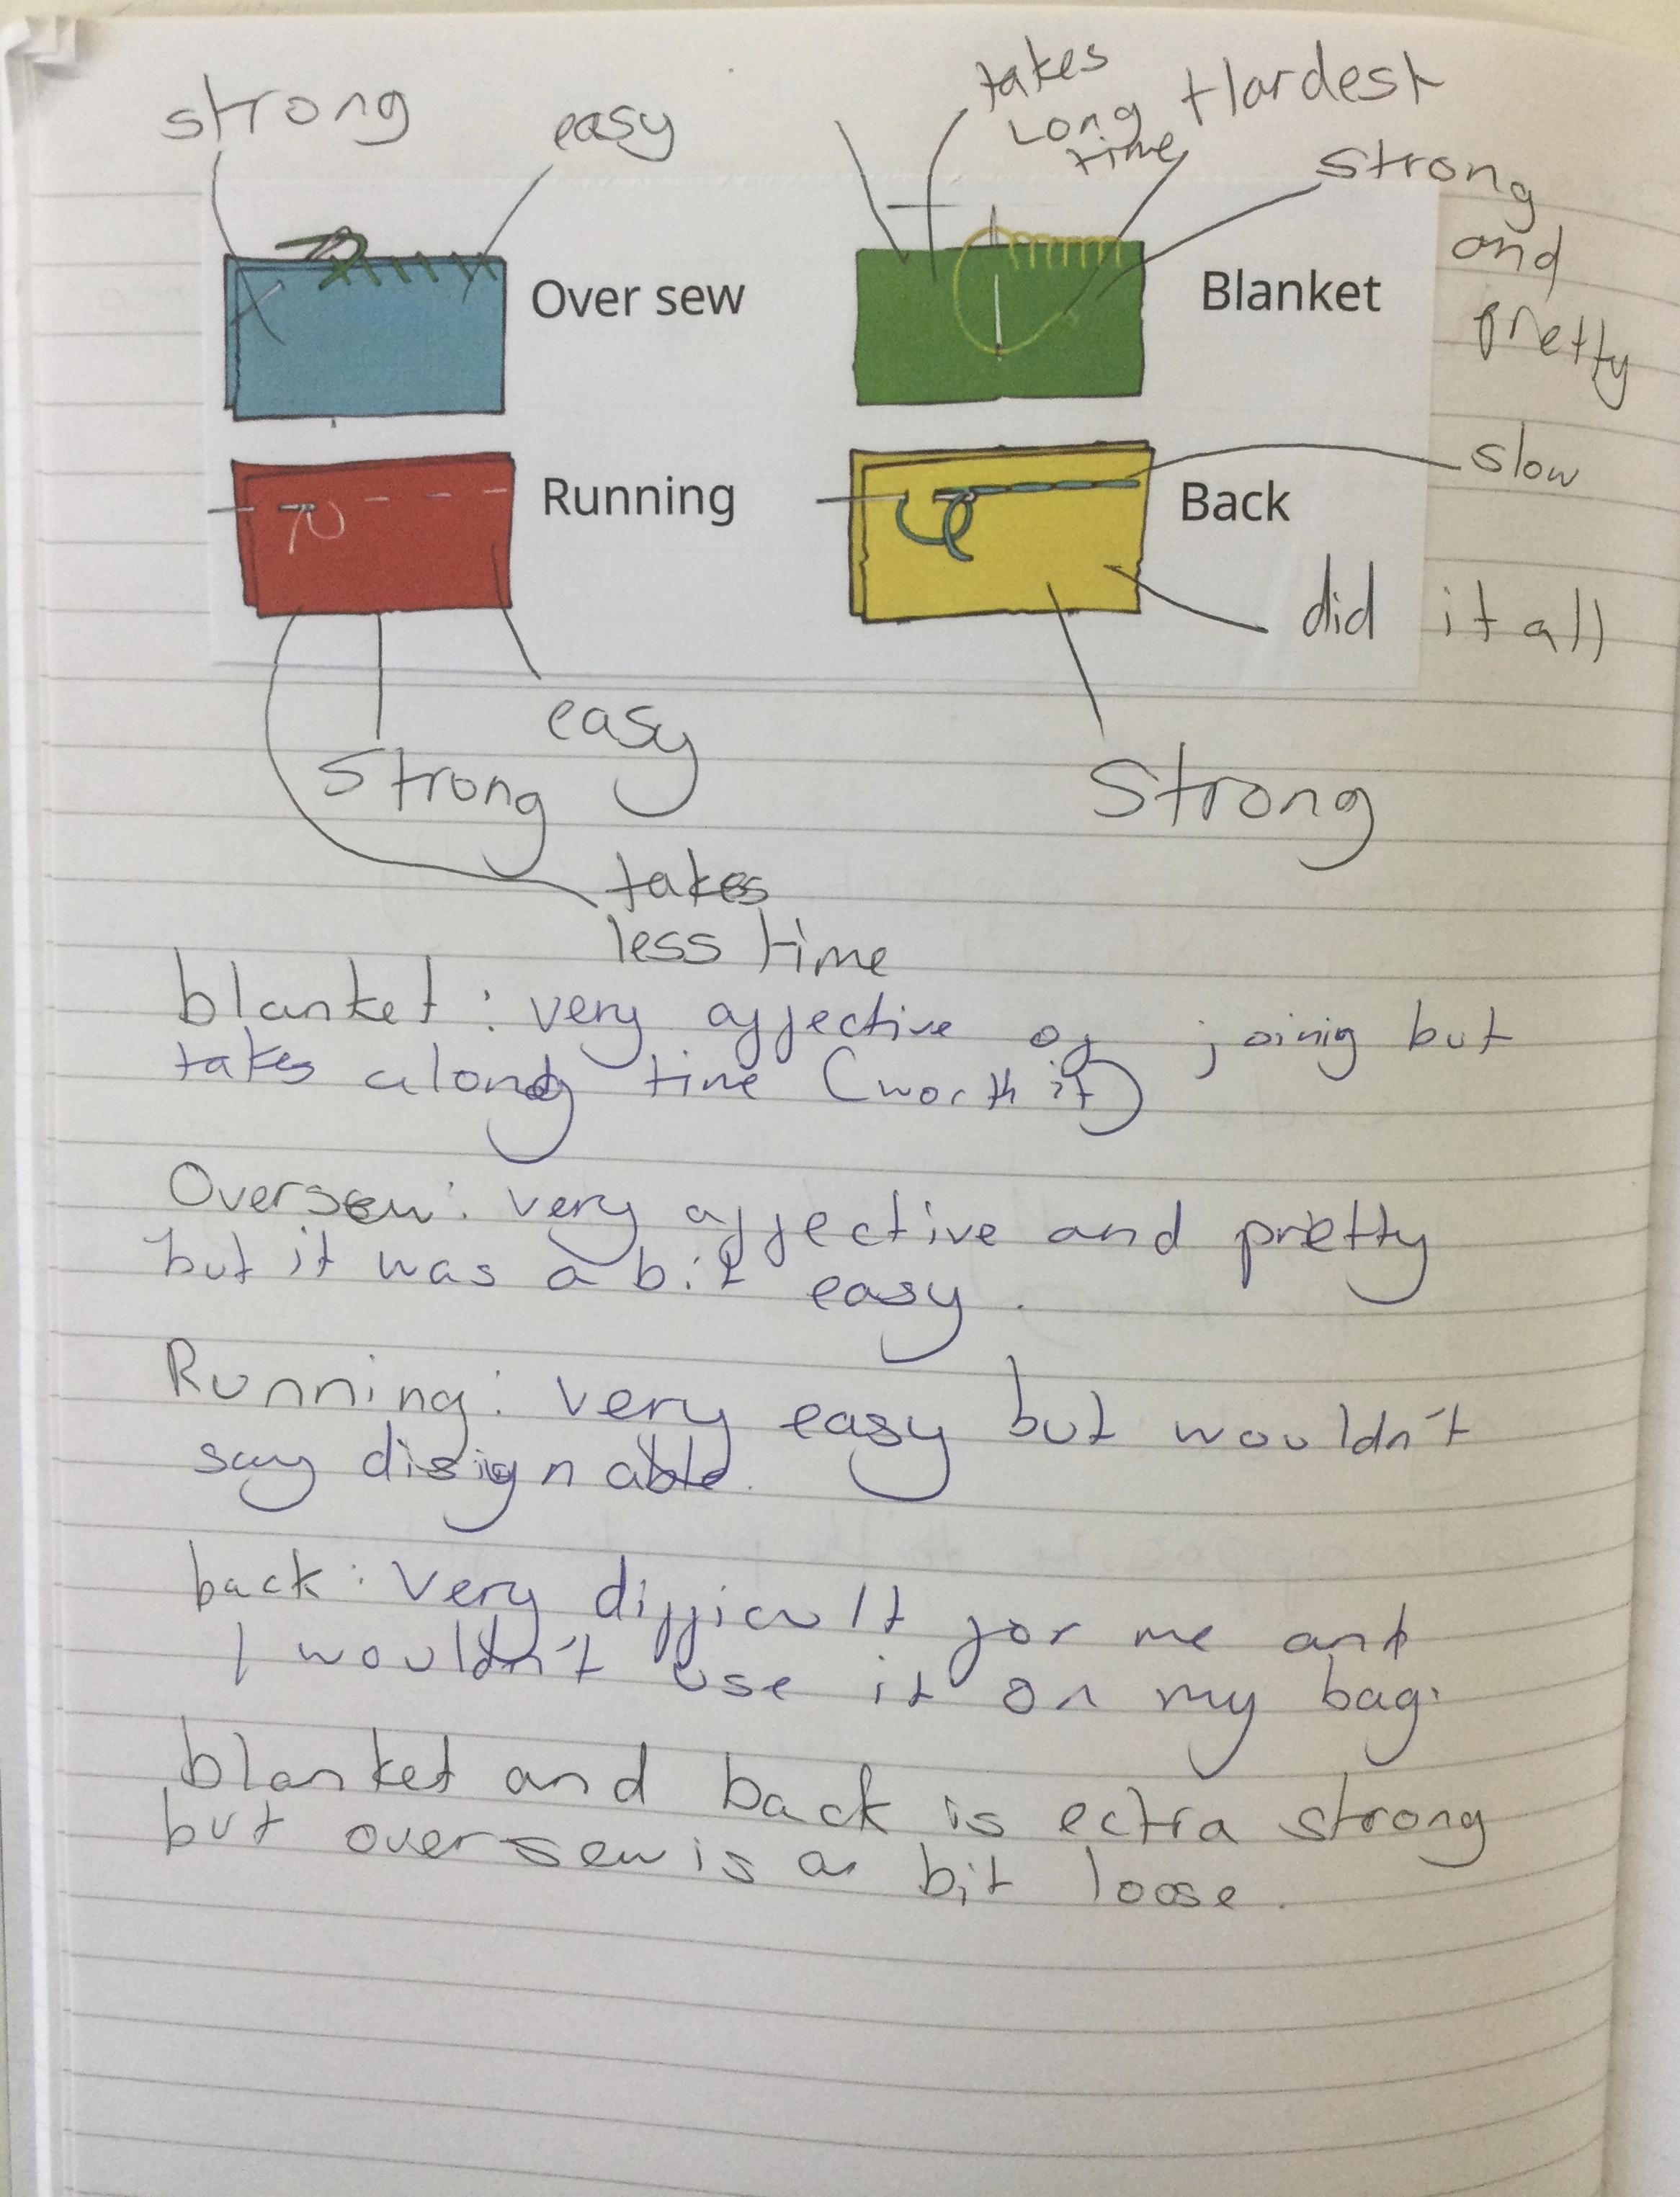 strong
easy
takes
Long
time
Hardest
strong
and
pretty
Over sew
Blanket
Running
Back
slow
did it all
easy
strong
Strong
takes
less time
blanket: very affective of joinig but
takes along time (worth it)
Oversew: very affective and pretty
but it was a bit easy.
Running: very easy but wouldn't
say disignable.
back: Very difficult for me and
I wouldn't use it on my bag.
blanket and back is ectra strong
but over sew is a bit loose.